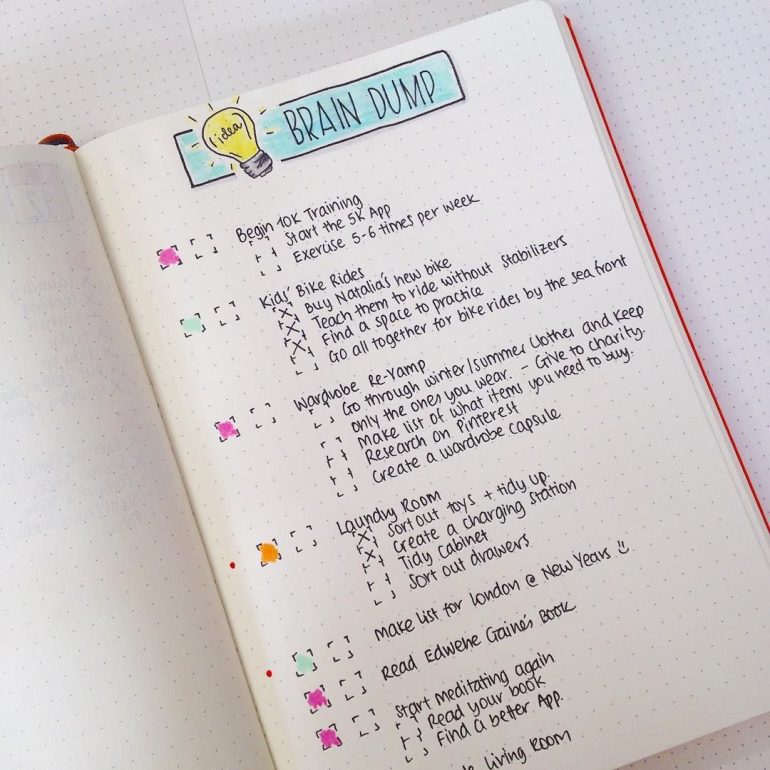 idea
BRAIN DUMP
Begin 10K Training
Start the 5K App
Exercise 5-6 times per week
Kids' Bike Rides
Buy Natalia's new bike
Teach them to ride without stabilizers
Find a space to practice
Go all together for bike rides by the sea front
Wardrobe Re-Vamp
Go through winter/summer Clothes and keep
only the ones you wear. - Give to charity.
Make list of what items you need to buy.
Research on Pinterest
Create a wardrobe capsule
Laundry Room
Sort out toys + tidy up.
Create a charging station
Tidy Cabinet
Sort out drawers
Make list for London @ New Years
Read Edwene Gaine's Book
Start meditating again
Read your book
Find a better App.
Living Room